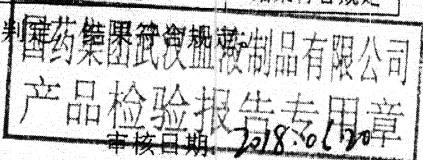 结果符合规定
判定：结果符合规定。
国药集团武汉血液制品有限公司
产品检验报告专用章
审核日期 2018.06.20